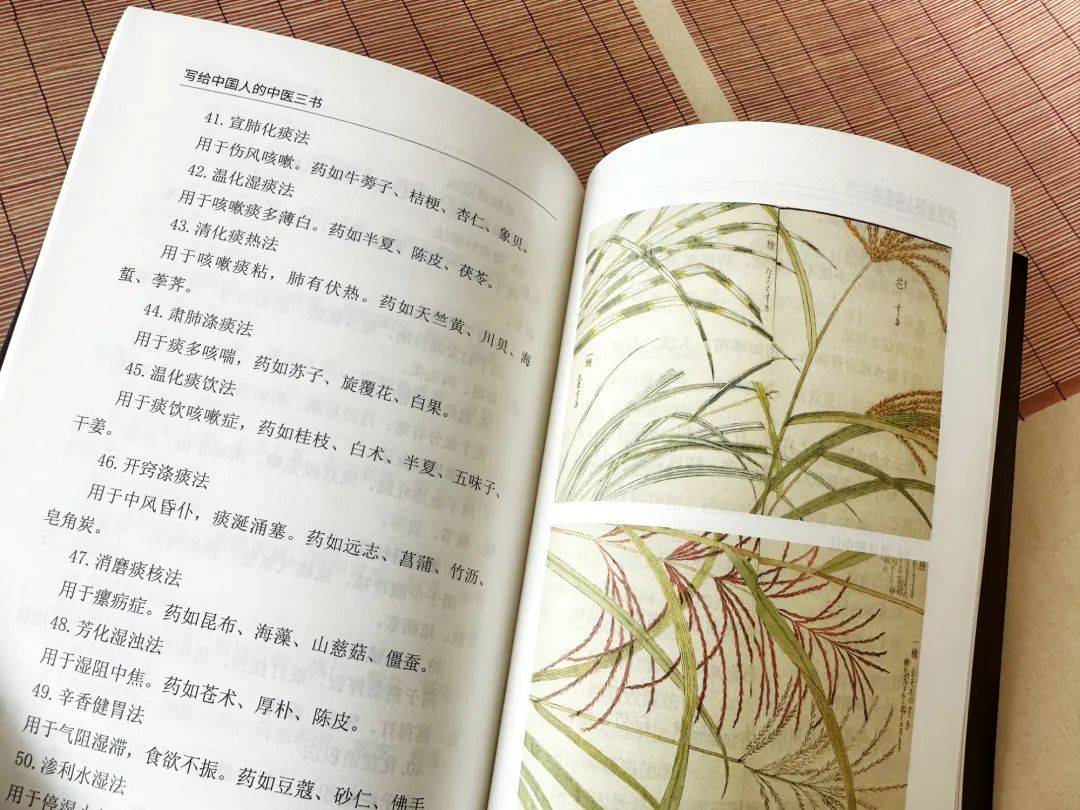 写给中国人的中医三书
41. 宣肺化痰法
用于伤风咳嗽。药如牛蒡子、桔梗、杏仁、象贝。
42. 温化湿痰法
用于咳嗽痰多薄白。药如半夏、陈皮、茯苓。
43. 清化痰热法
用于咳嗽痰粘，肺有伏热。药如天竺黄、川贝、海
蜇、荸荠。
44. 肃肺涤痰法
用于痰多咳喘，药如苏子、旋覆花、白果。
45. 温化痰饮法
用于痰饮咳嗽症，药如桂枝、白术、半夏、五味子、
干姜。
46. 开窍涤痰法
用于中风昏仆，痰涎涌塞。药如远志、菖蒲、竹沥、
皂角炭。
47. 消磨痰核法
用于瘰疬症。药如昆布、海藻、山慈菇、僵蚕。
48. 芳化湿浊法
用于湿阻中焦。药如苍术、厚朴、陈皮。
49. 辛香健胃法
用于气阻湿滞，食欲不振。药如豆蔻、砂仁、佛手
50. 渗利水湿法
用于停湿
一種
芒
一種
一種